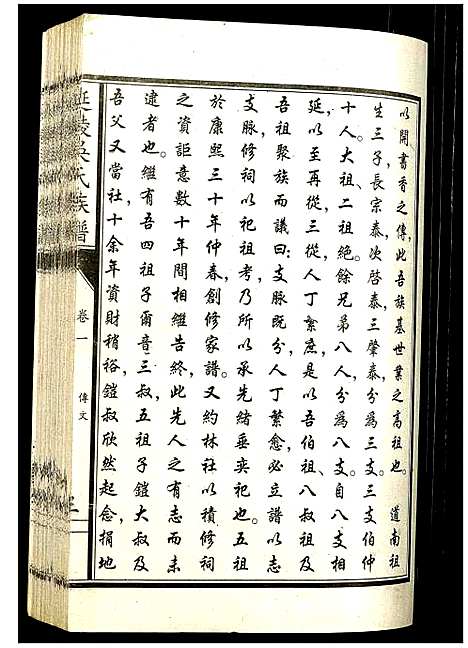 以開書香之傳，此吾族基世業之高祖也。　道南祖
生三子，長宗泰，次啓泰，三肇泰，分為三支。三支伯仲
十人。大祖、二祖絕。餘兄弟八人，分為八支。自八支相
延，以至再從，三從，人丁繁庶。是以吾伯祖、八叔祖及
吾祖聚族而議曰：支脈既分，人丁繁愈，必立譜以志
支脈，修祠以祀祖考，乃所以承先緒垂奕祀也。五祖
於康熙三十年仲春，創修家譜。又約林社以積修祠
之資詎意數十年間相繼告終，此先人之有志而未
逮者也。繼有吾四祖子爾音三叔，五祖子鎧大叔及
吾父又當社十余年，資財稍裕，鎧叔欣然起念捐地
延陵吳氏族譜
卷一
傳文